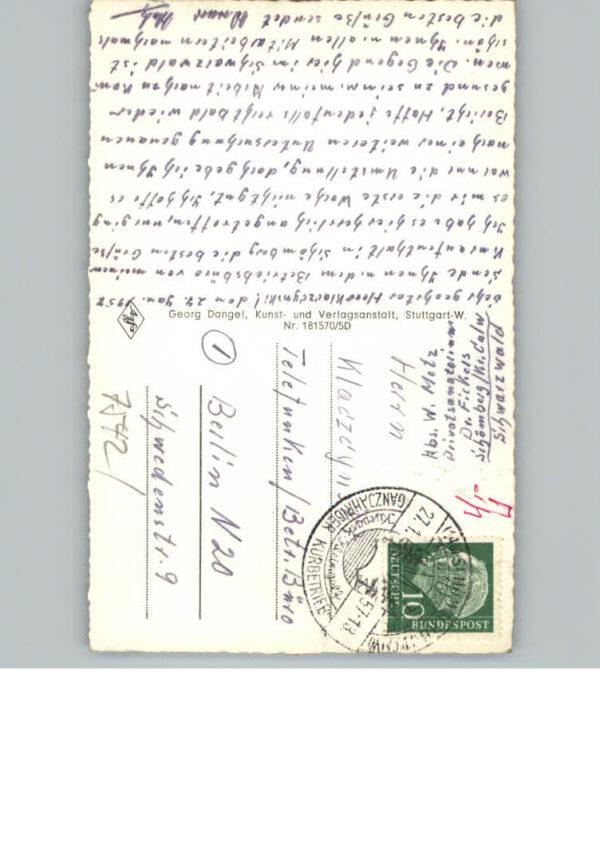 Sehr geehrter Herr Klaczynski! den 27. Jan. 1957
Sende Ihnen u. dem Betriebsbüro von meinem
Kuraufenthalt in Schömberg die besten Grüße
Ich habe es hier herrlich angetroffen, nur ging
es mir die erste Woche nicht gut, Ich hoffe es
war nur die Umstellung, doch gebe ich Ihnen
nach einer weiteren Untersuchung genauen
Bericht. Hoffe jedenfalls recht bald wieder
gesund zu seinen meiner Arbeit nach zu kom
men. Die Gegend hier im Schwarzwald ist
schön. Ihnen u. allen Mitarbeitern nochmals
die besten Grüße sendet Ihnen Metz
Agfa
Georg Dangel, Kunst- und Verlagsanstalt, Stuttgart-W.
Nr. 181570/5D
Abs. W. Metz
Privatsanatorium
Dr. Fickels
Schömberg/Kr. Calw
Schwarzwald
Herrn
Klaczynski
Telefunken/Betr. Büro
①
Berlin N 20
Schwedenstr. 9
GANZJÄHRIGER KURBETRIEB
27.1.57-18
DEUTSCHE
BUNDESPOST
10